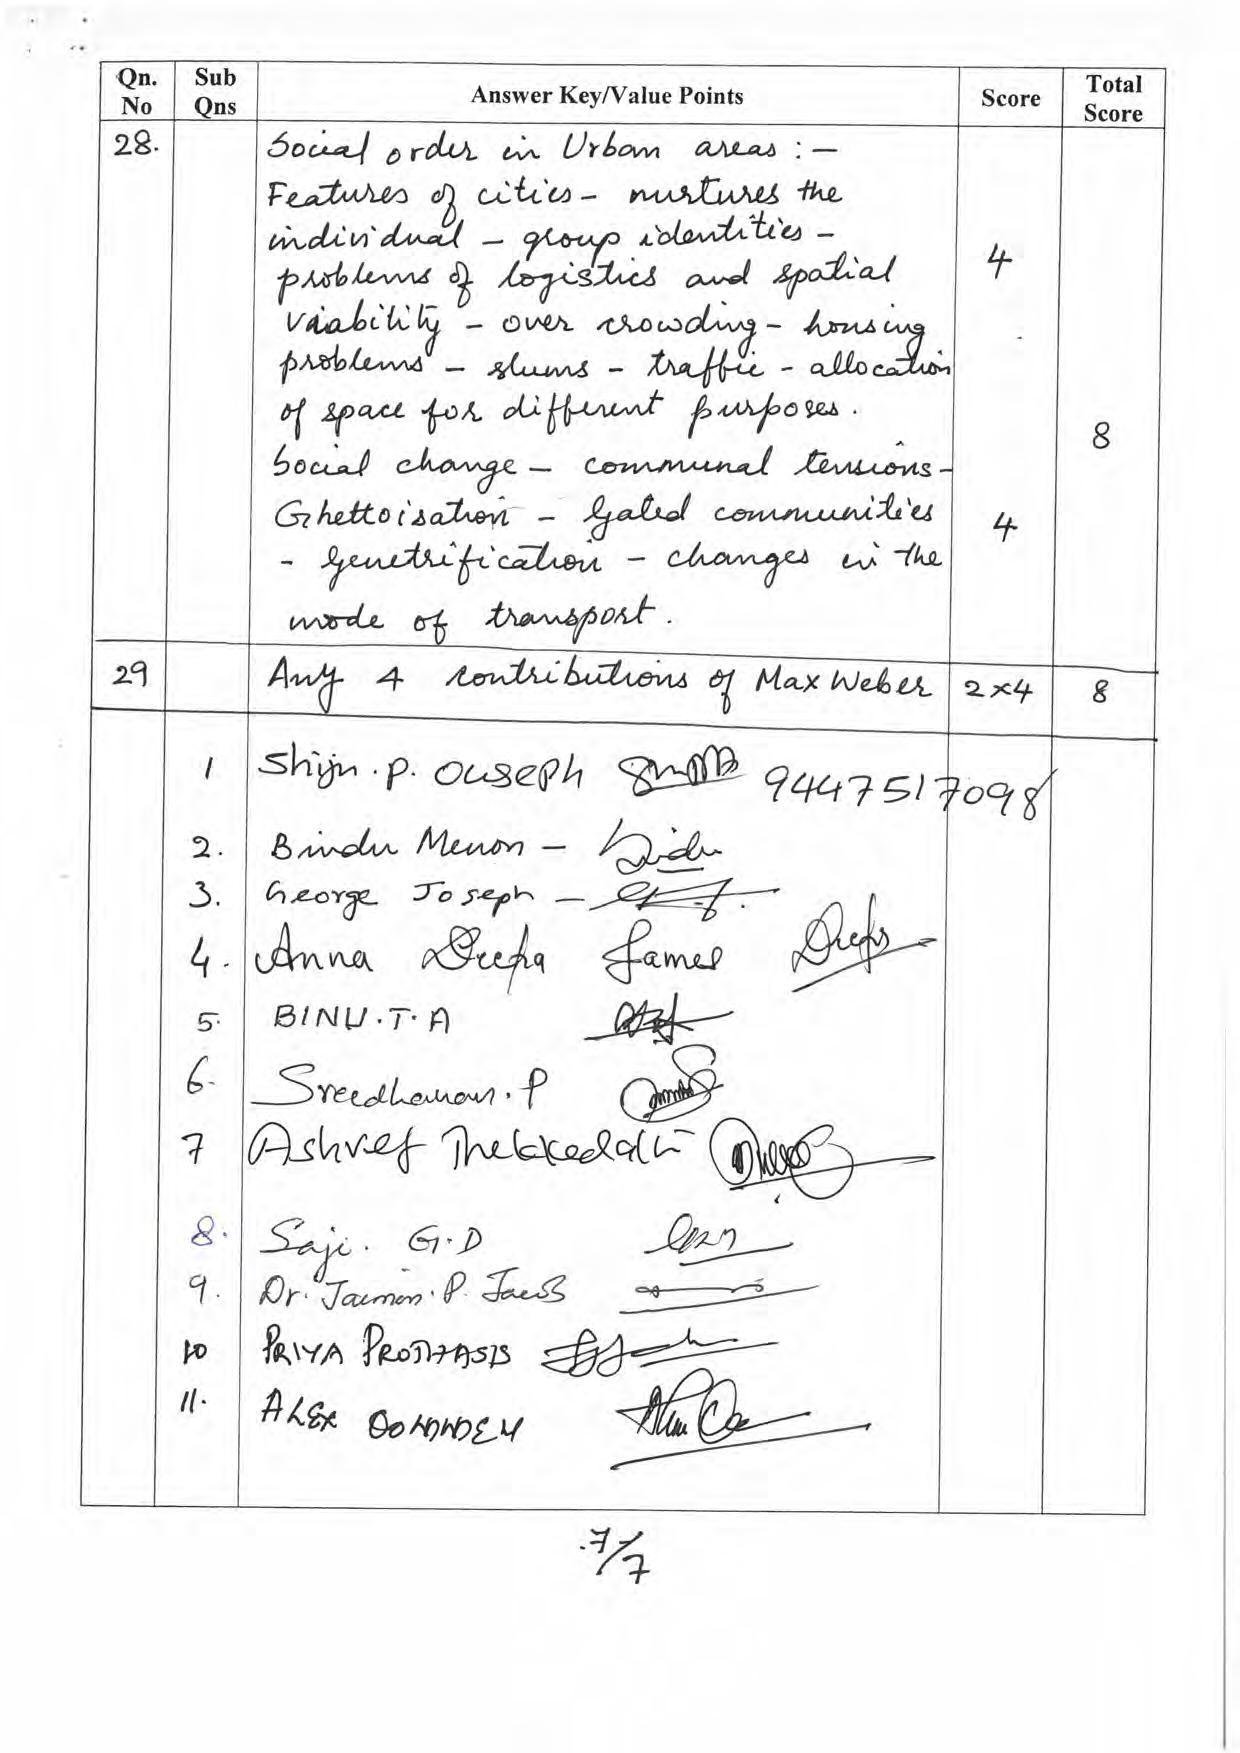 Qn. No Sub Qns Answer Key/Value Points Score Total Score
28. Social order in Urban areas : –
Features of cities – nurtures the
individual – group identities –
problems of logistics and spatial 4
viability – over crowding – housing
problems – slums – traffic – allocation
of space for different purposes.
8
Social change – communal tensions –
Ghettoisation – Gated communities 4
- Genetrification – changes in the
mode of transport.
29 Any 4 contributions of Max Weber 2x4 8
1 Shijn . P. OUSEPH 9447517098
2. Bindu Menon –
3. George Joseph –
4. Anna Deepa James Deepa
5. BINU.T.A
6. Sreedharan. P
7 Ashref Thekkedath
8. Saji. G.D
9. Dr. Jaimon. P. Jacob
10 PRIYA PROTHASIS
11. ALEX OOMMEN
.7/7